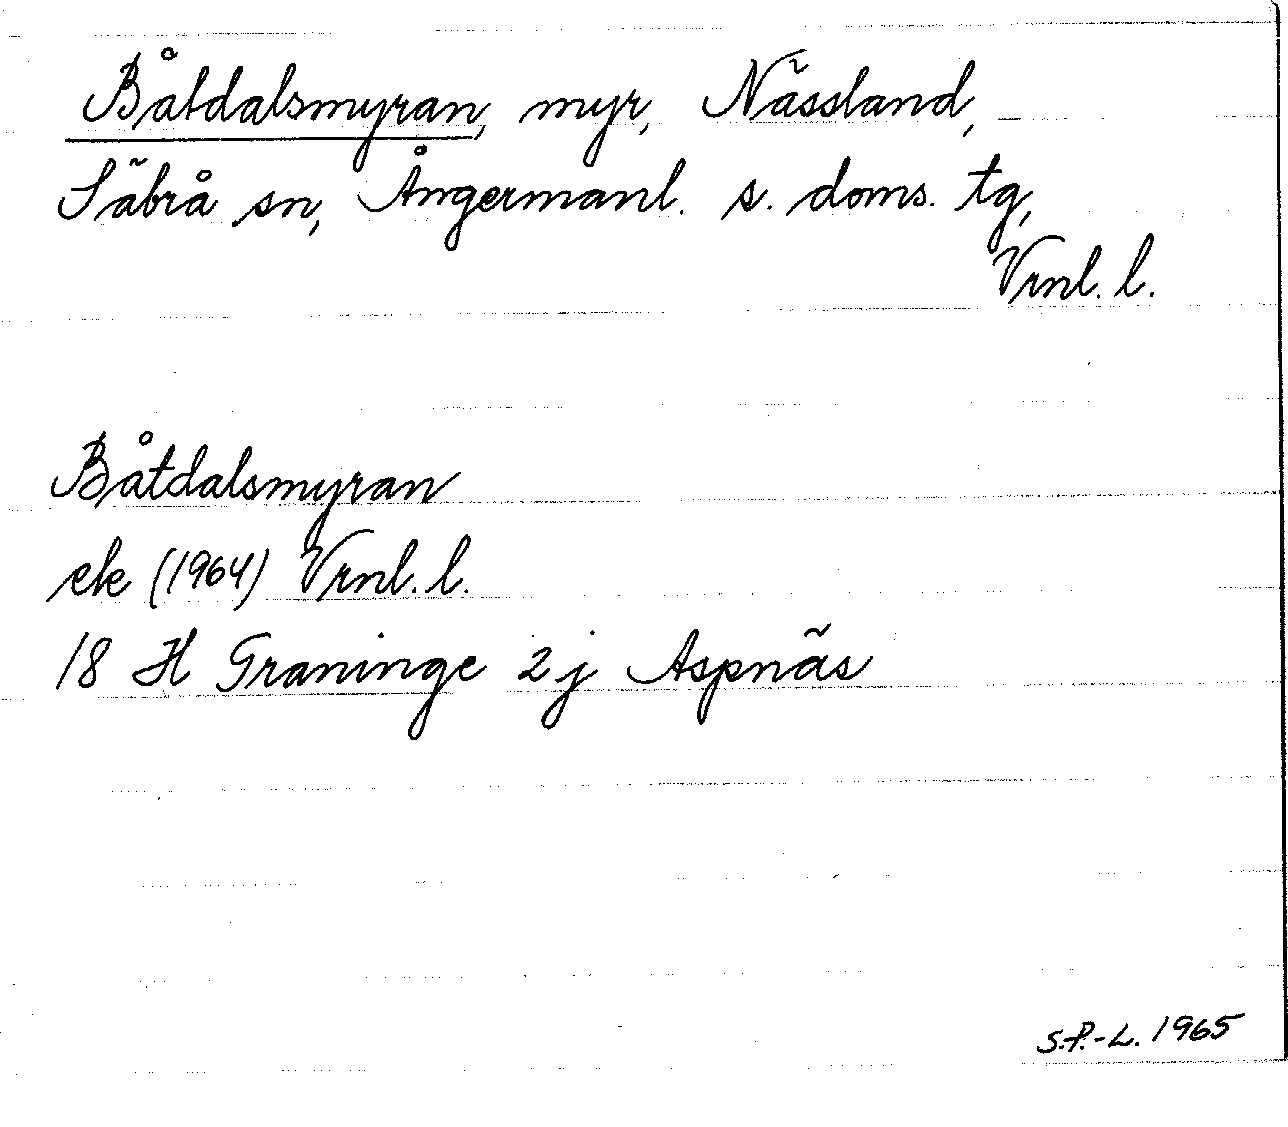 Båtdalsmyran, myr, Nässland,
Säbrå sn, Ångermanl. s. doms. tg,
Vrnl. l.
Båtdalsmyran
ek (1964) Vrnl. l.
18 H Graninge 2 j Aspnäs
S.P.-L. 1965